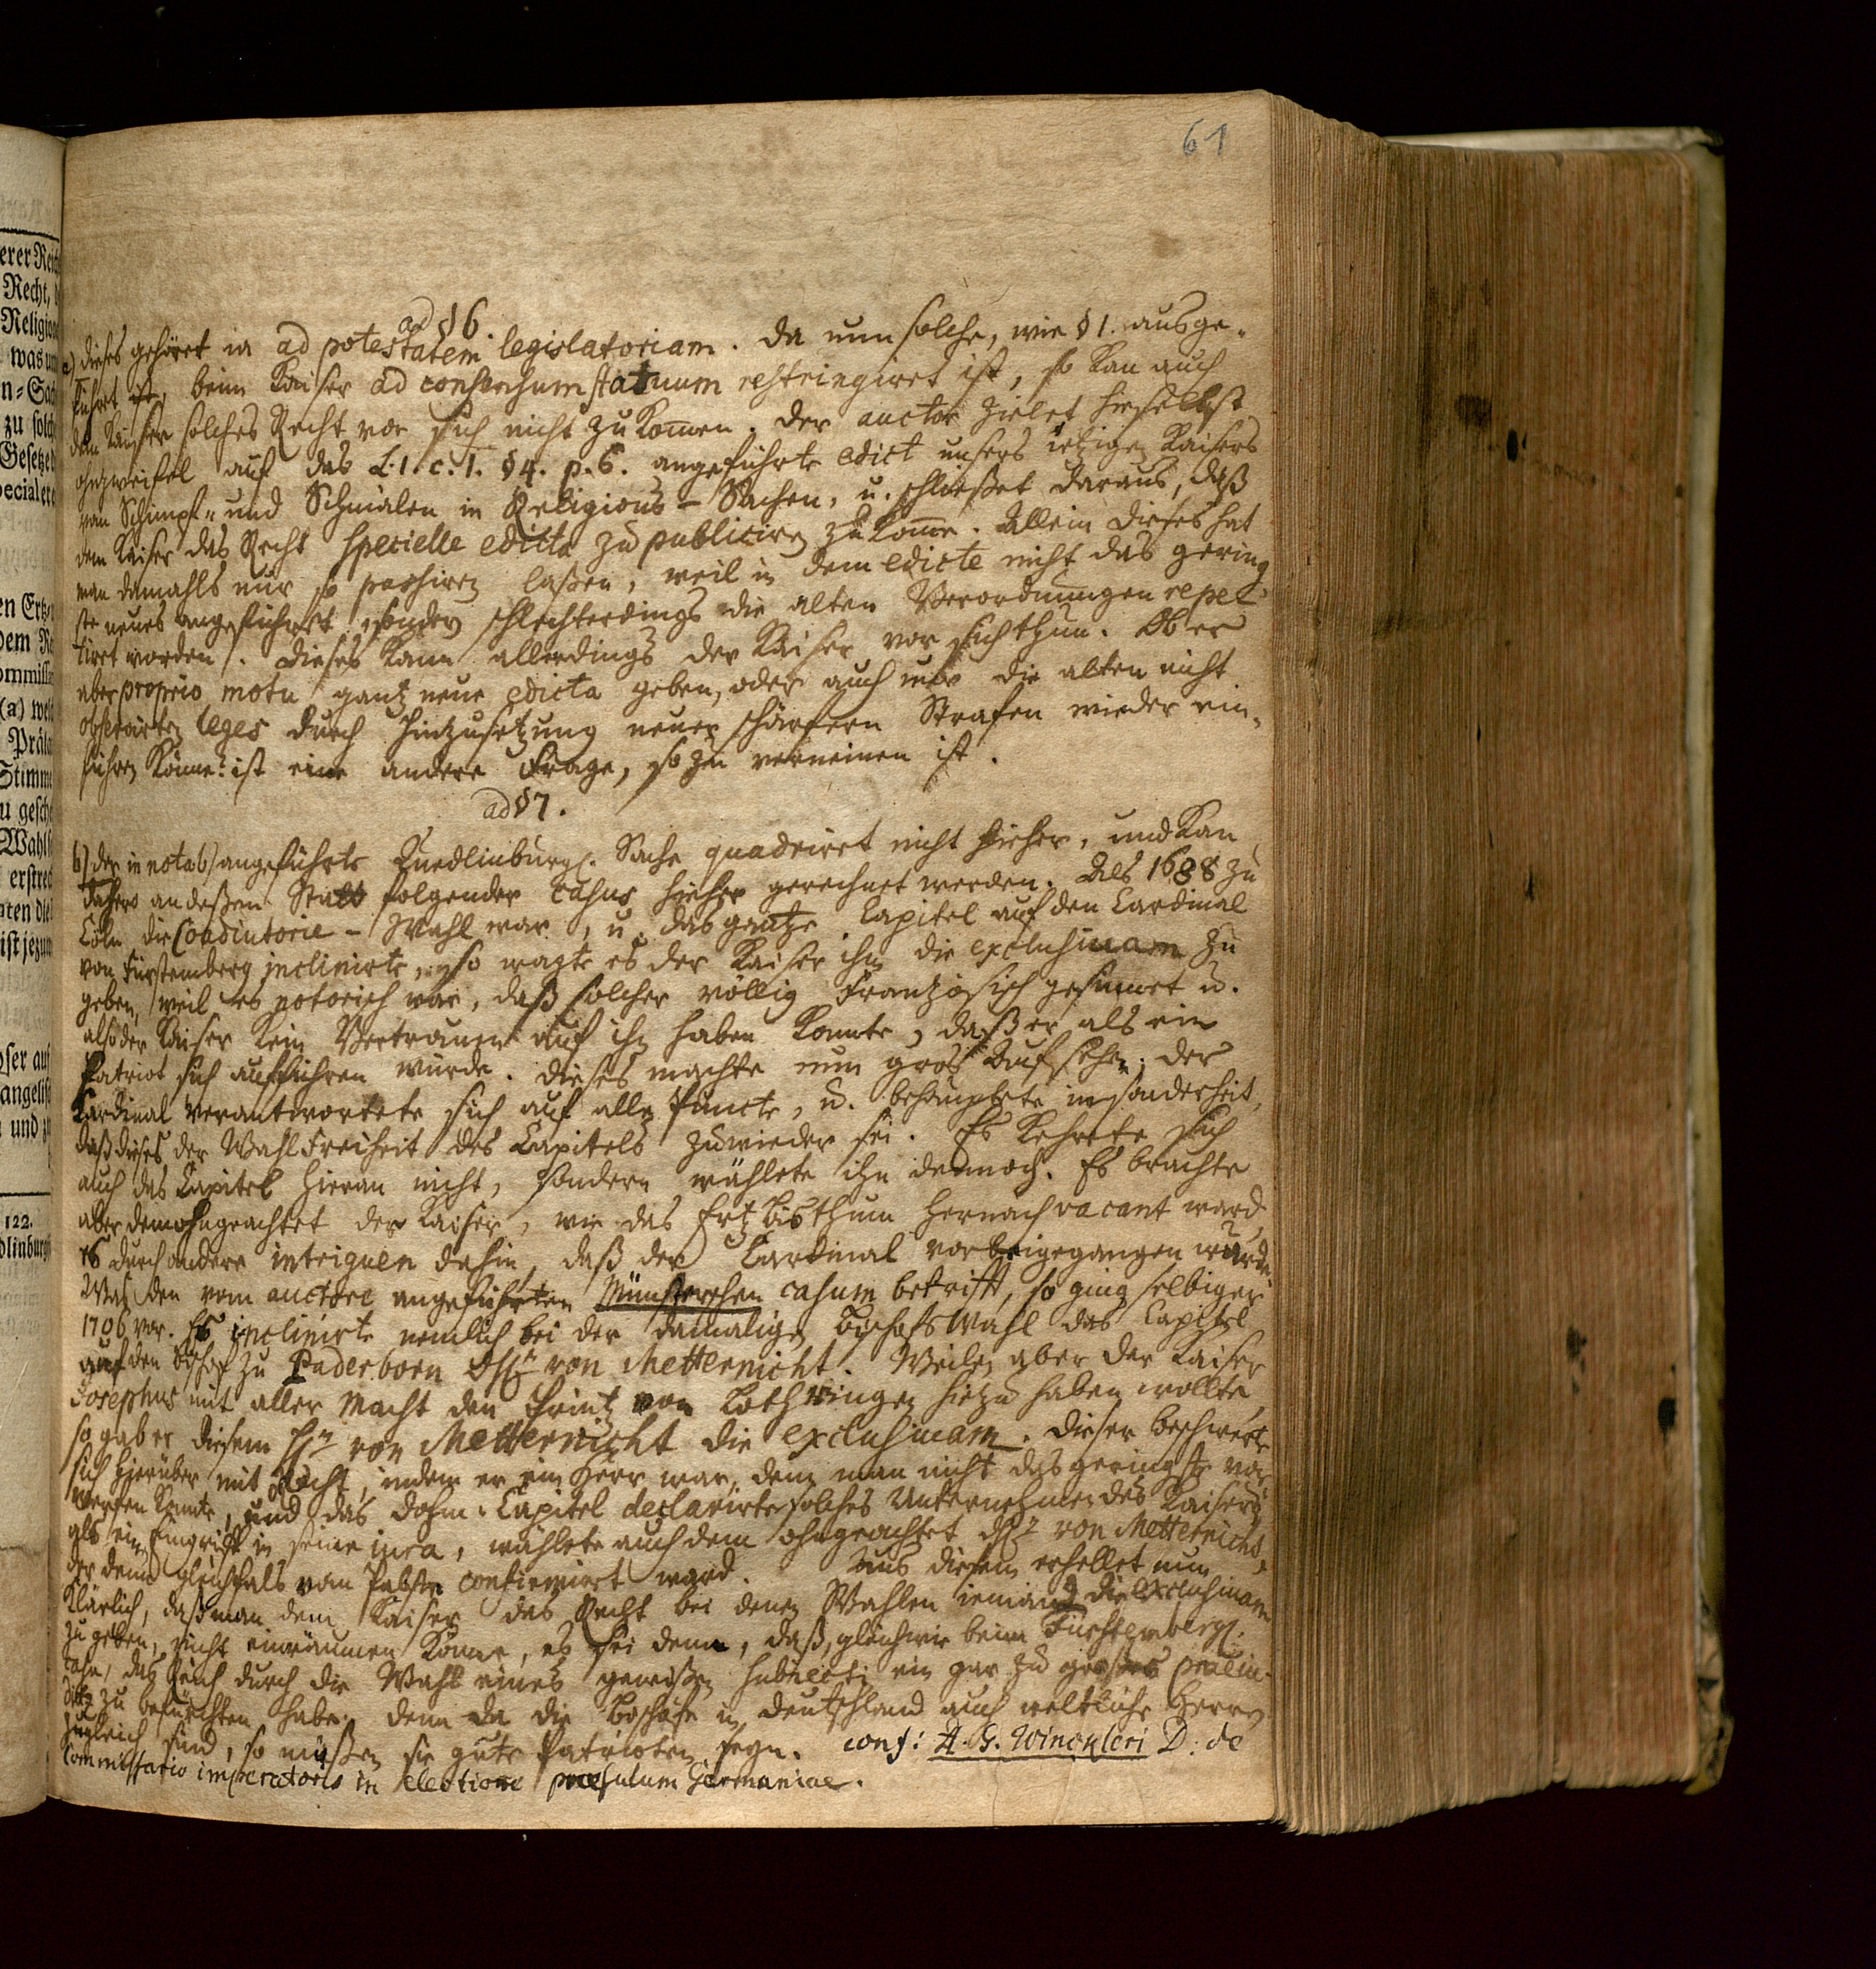 61
ad § 6.
a) dieses gehöret in ad potestatem legislatoriam. Da nun solche, wie § 1. ausge-
führt ist, beim Kaiser ad consensum statuum restringiret ist, so kan auch
dem Kaiser solches Recht vor sich nicht zukom̄en. Der auctor zielet hieselbst
ohnzweifel auf das L. 1. c. 1. § 4. p. 6. angeführte edict unsers ietzigen Kaisers
vom Schimpf- und Schmälen in Religions-Sachen, u. schließet daraus, daß
dem Kaiser das Recht specielle edicta zu publiciren zukom̄e. Allein dieses hat
man damahls nur so passiren laßen, weil in dem edicte nicht das gering-
ste neues angeführt, sondern schlechterdings die alten Verordnungen repe-
tiret worden. Dieses kann allerdings der Kaiser vor sich thun. Ob er
aber proprio motu gantz neue edicta geben, oder auch nur die alten nicht
observirten leges durch Hinzusetzung neuer schärfern Strafen wieder ein-
führen könne? ist eine andere Frage, so zu verneinen ist.
ad § 7.
b) der in nota b) angeführte Quedlinburg. Sache quadriret nicht hieher, und kan
dahero an deßen Statt folgender casus hieher gerechnet werden. Als 1688 zu
Cöln die Coadiutorie-Wahl war, u. das gantze Capitel auf den Cardinal
von Fürstemberg inclinirte, so wagte es der Kaiser ihm die exclusivam zu
geben, weil es notorisch war, daß solcher völlig Frantzösisch gesinnet u.
also der Kaiser kein Vertrauen auf ihn haben konnte, daß er als ein
Patriot sich aufführen würde. Dieses machte nun gros Aufsehen; der
Cardinal verantwortete sich auf alle Puncte, u. behauptete insonderheit,
daß dieses der Wahl Freiheit des Capitels zuwieder sei. Es kehrete sich
auch das Capitel hieran nicht, sondern wählete ihn dennoch. Es brachte
aber demohngeachtet der Kaiser, wie das Ertz Bisthum hernach vacant ward,
es durch andere intriguen dahin, daß der Cardinal vorbeigegangen wurde.
Was den vom auctore angeführten Münsterschen casum betrifft, so ging selbiger
1706 vor. Es inclinirte nemlich bei der damaligen Bischofs Wahl das Capitel
auf den Bischof zu Paderborn von Metternicht. Weilen aber der Kaiser
Josephus mit aller Macht den Printz von Lothringen hiezu haben wollte,
so gab er diesem von Metternicht die exclusivam. Dieser beschwerte
sich hierüber mit Recht, indem er ein Herr war, dem man nicht das geringste vor-
werfen konnte, und das Dohm-Capitel declarirte solches Unternehmen des Kaisers
als ein Eingriff in seine iura, wählete auch dem ohngeachtet von Metternicht,
der denn gleichfals vom Pabste confirmirt ward. Aus diesem erhellet nun
klärlich, daß man dem Kaiser das Recht bei denen Wahlen iemand die exclusivam
zu geben, nicht einräumen könne, es sei denn, daß, gleichwie beim Fürstemberg.
casu, das Reich durch die Wahl eines gewißen subiecti ein gar zu großes praeiu-
diz zu befürchten habe. Denn da die Bischöfe in Deutschland auch weltliche Herren
zugleich sind, so müßen sie gute Patrioten seyn. conf: A. G. Winckleri D. de
Commissario imperatoris in electione praesulum Germaniae.